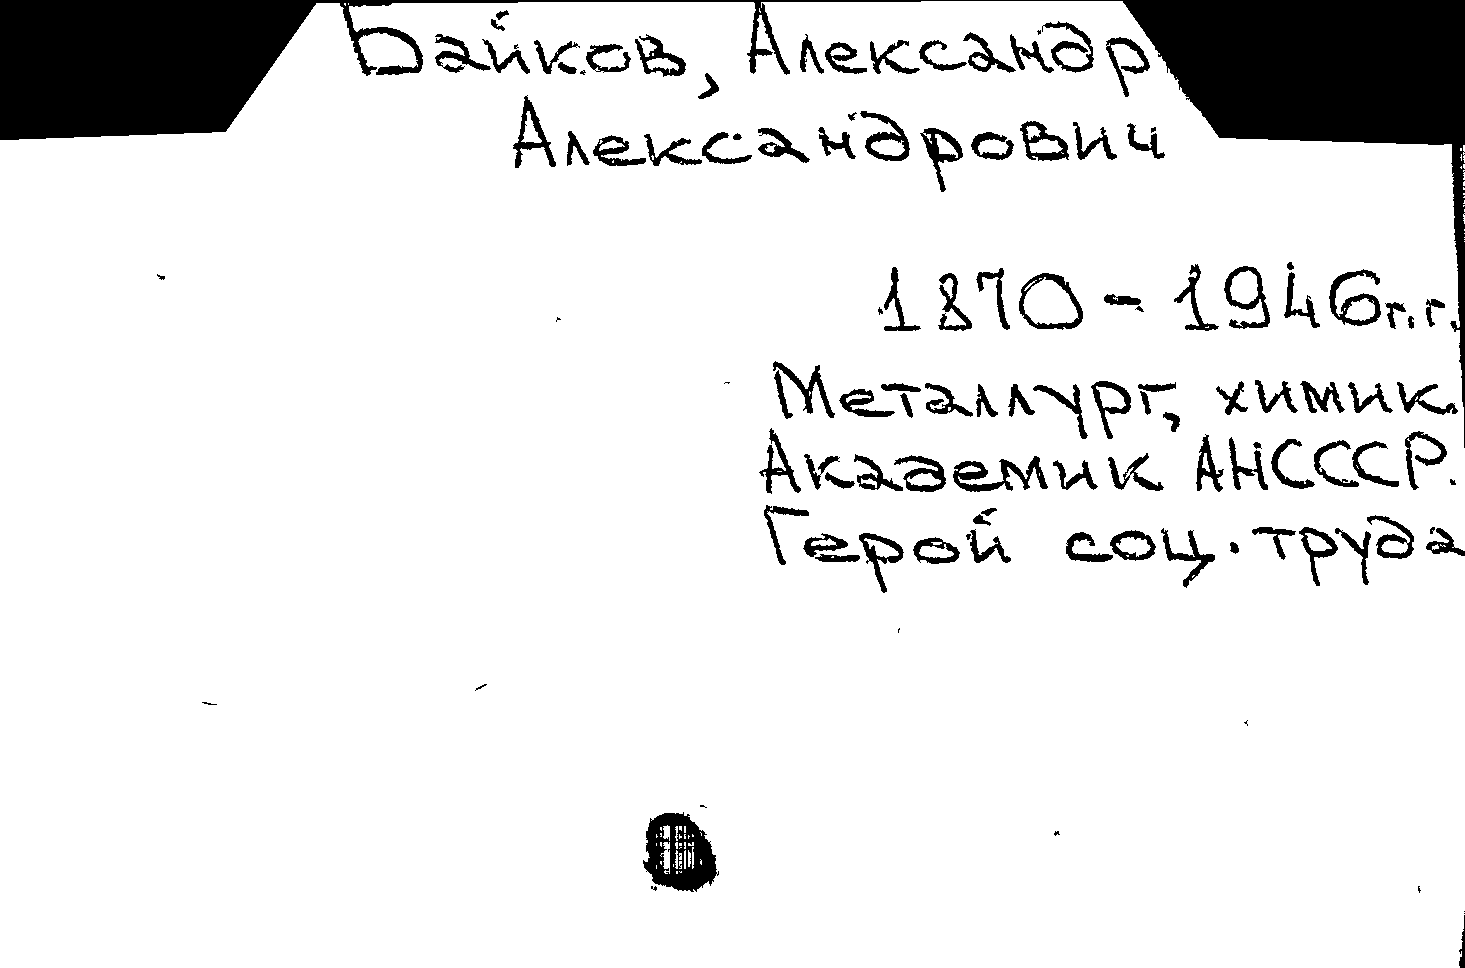 Байков, Александр
Александрович
1870-1946г.г.
Металлург, химик.
Академик АНСССР.
Герой соц. труда